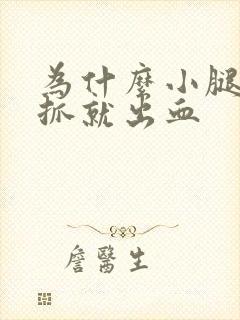 為什麼小腿
抓就出血
詹醫生